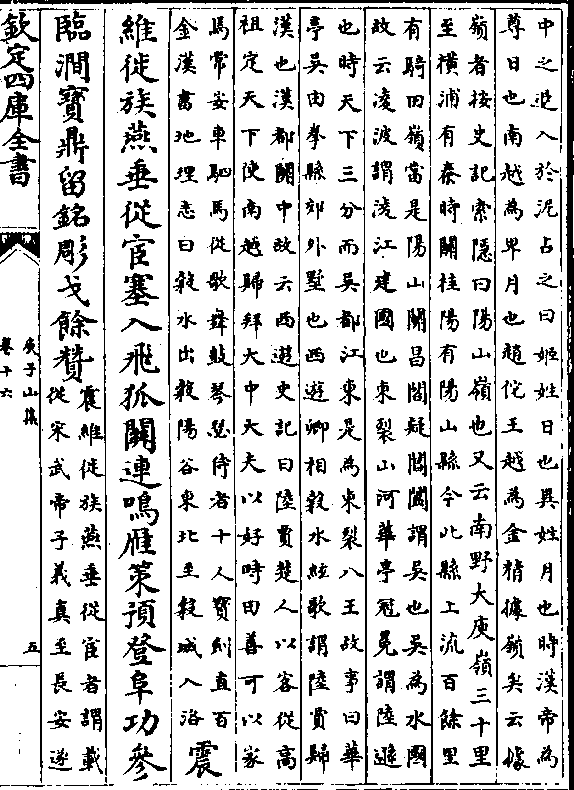 中之退入於泥占之曰姬姓日也異姓月也時漢帝為
尊日也南越為卑月也趙佗王越為金精據嶺矣云據
嶺者按史記索隱曰陽山嶺也又云南野大庾嶺三十里
至横浦有秦時關桂陽有陽山縣今此縣上流百餘里
有騎田嶺當是陽山關昌閻疑閶闔謂吳也吳為水國
故云凌波謂淩江建國也東裂山河華亭冠冕謂陸遜
也時天下三分而吳都江東是為東裂八王故事曰華
亭吳由拳縣郊外墅也西遊卿相榖水絃歌謂陸賈歸
漢也漢都關中故云西遊史記曰陸賈楚人以客從高
祖定天下使南越歸拜大中大夫以好畤田善可以家
焉常安車駟馬從歌舞鼓琴瑟侍者十人寶劍直百
金漢書地理志曰榖水出榖陽谷東北至榖城入洛
震
維徙族燕垂從宦塞入飛狐關連鳴雁策預登阜功參
臨澗寳鼎留銘彫戈餘贊
震維徙族燕垂從宦者謂載
從宋武帝子義真至長安遂
欽定四庫全書
庾子山集
卷十六
五